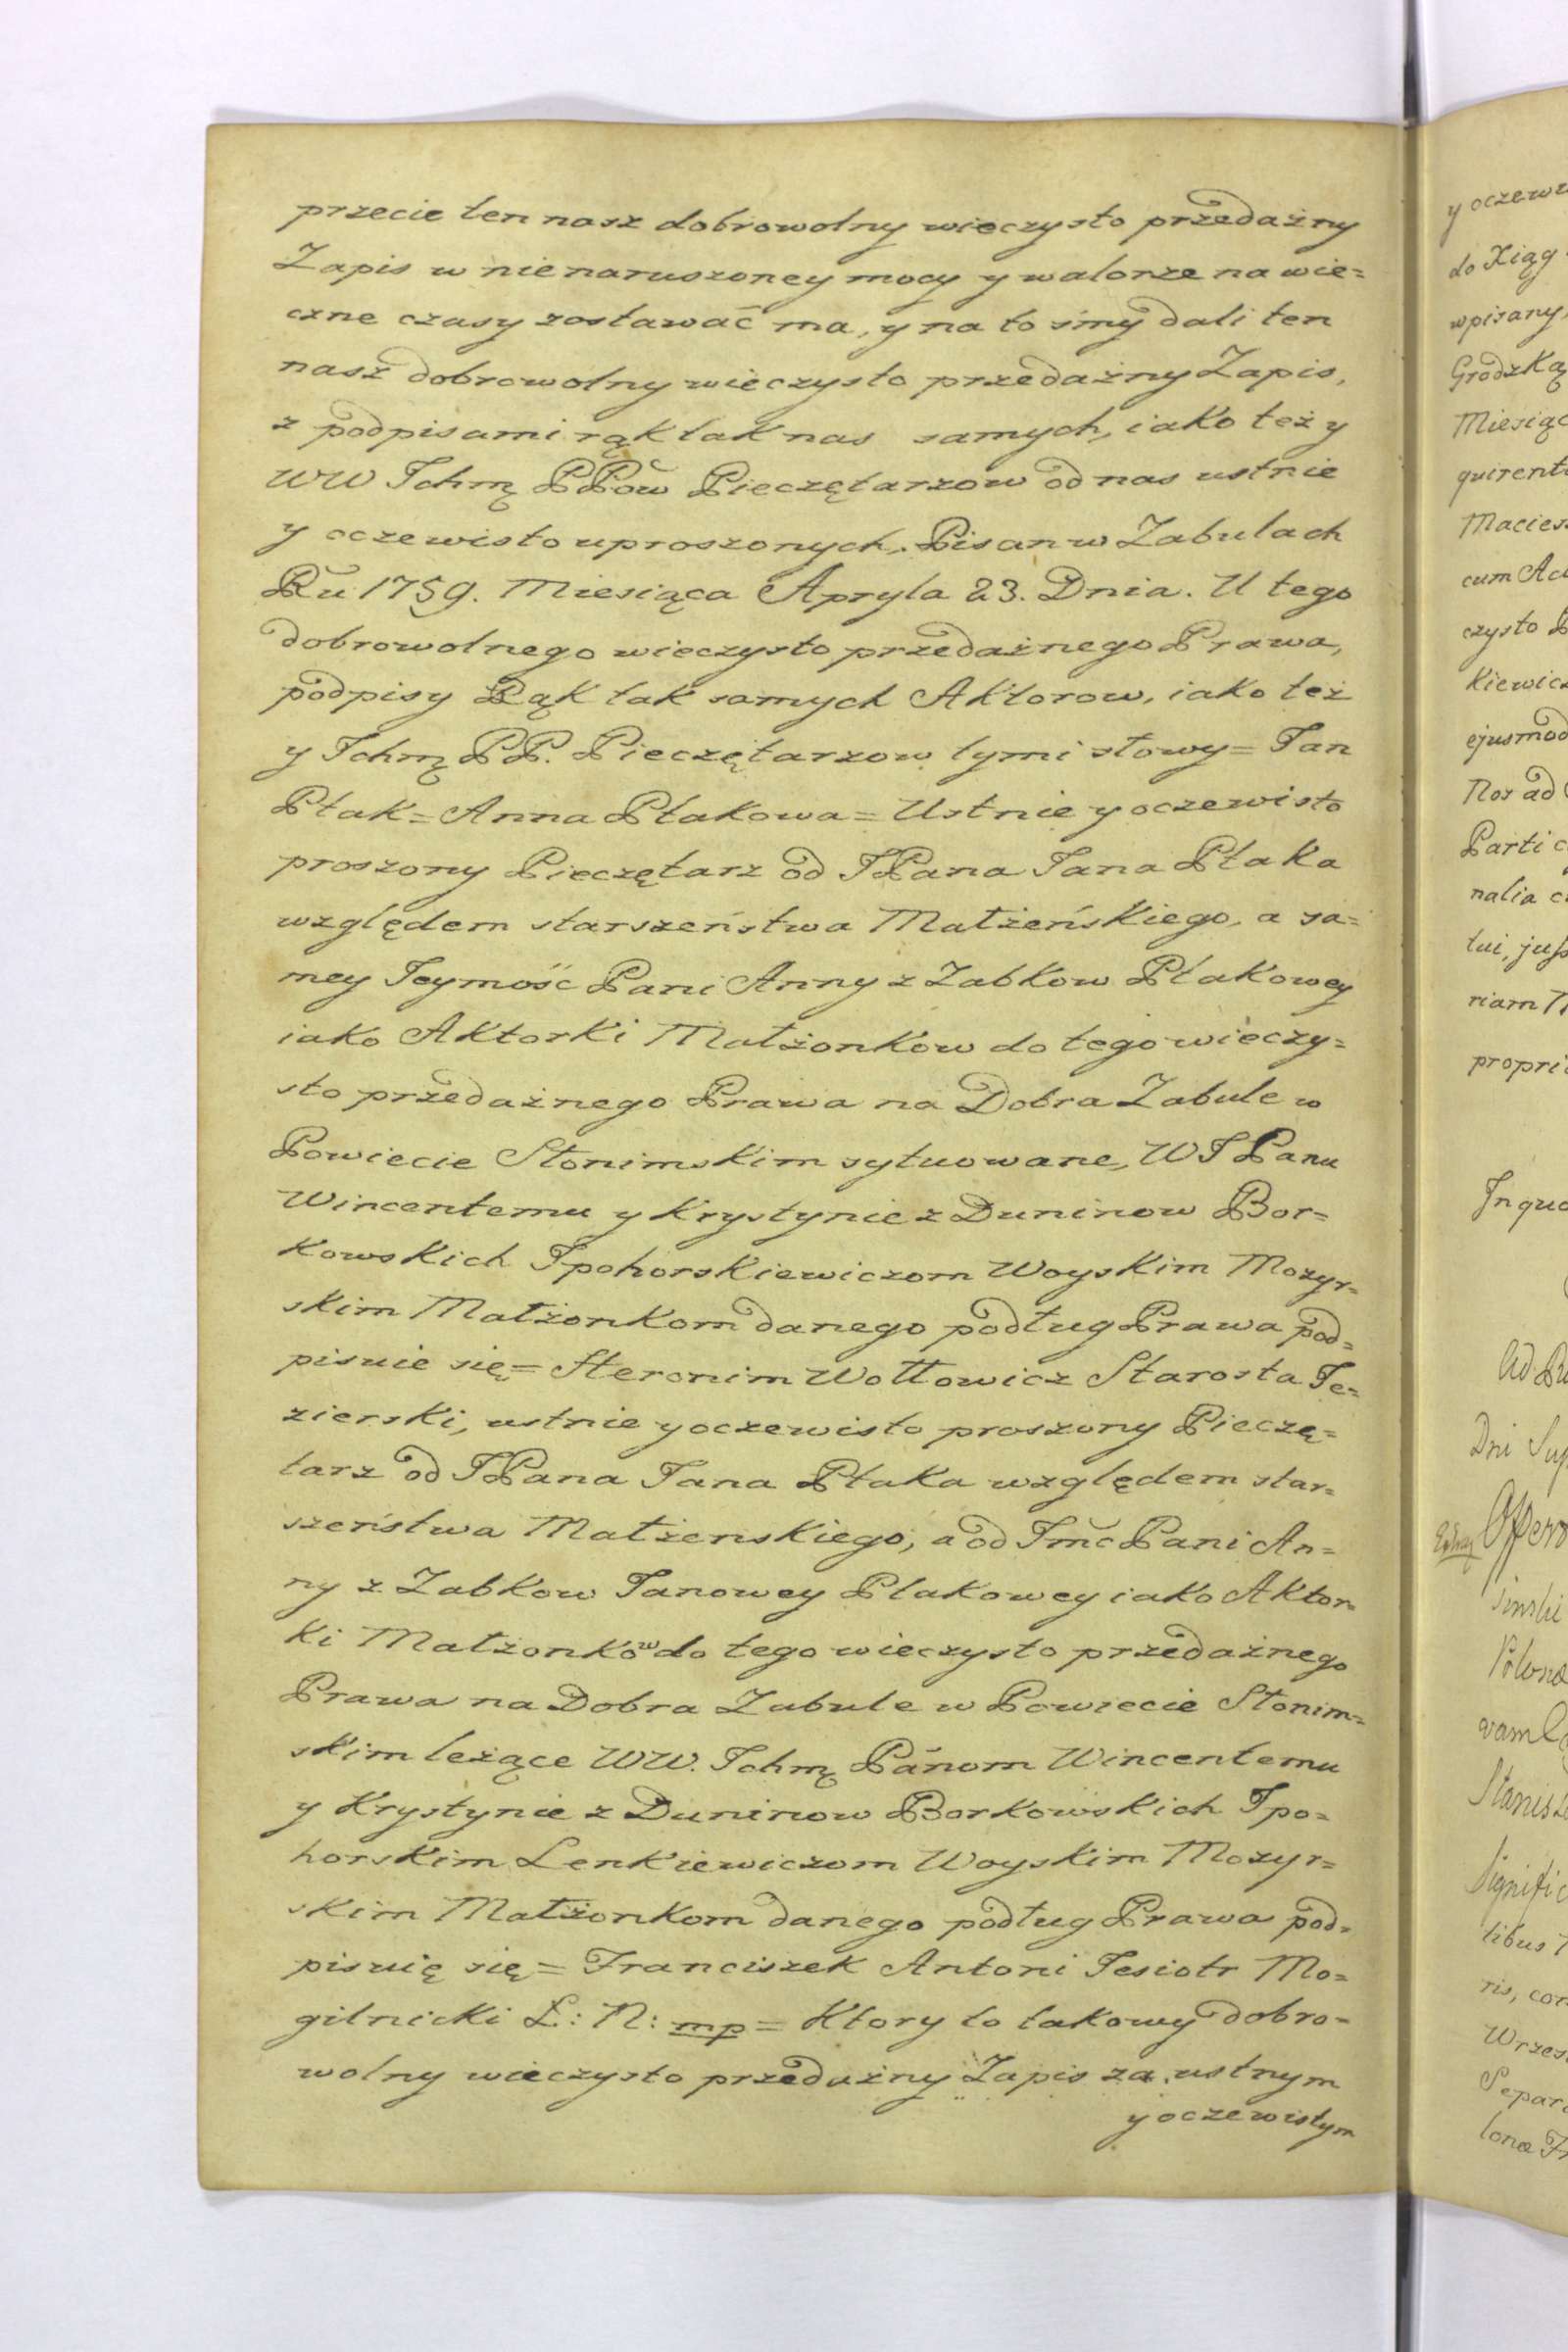 przecie ten nasz dobrowolny wieczysto przedażny
Zapis w nienaruszoney mocy y walorze na wie=
czne czasy zostawać ma, y na to śmy dali ten
nasz dobrowolny wieczysto przedażny Zapis,
z podpisami rąk tak nas samych, iako też y
WW Ichmę PPow Pieczętarzow od nas ustnie
y oczewisto uproszonych. Pisan w Zabulach
Ru 1759. Miesiąca Apryla 23. Dnia. U tego
dobrowolnego wieczysto przedażnego Prawa,
podpisy Rąk tak samych Aktorow, iako też
y Ichmę PP. Pieczętarzow tymi słowy= Jan
Ptak= Anna Ptakowa= Ustnie y oczewisto
proszony Pieczętarz od JPana Jana Ptaka
względem starszeństwa Małżeńskiego, a sa=
mey Jeymość Pani Anny z Zabkow Ptakowey
iako Aktorki Małżonkow do tego wieczy=
sto przedażnego Prawa na Dobra Zabule w
Powiecie Słonimskim sytuowane, WJPanu
Wincentemu y Krystynie z Duninow Bor=
kowskich Ipohorskiewiczom Woyskim Mozyr=
skim Małżonkom danego podług Prawa pod=
pisuie się= Heronim Wołłowicz Starosta Je=
zierski, ustnie y oczewisto proszony Pieczę=
tarz od JPana Jana Ptaka względem star=
szeństwa Małżenskiego, a od Jmć Pani An=
ny z Zabkow Janowey Ptakowey iako Aktor=
ki Małżonkow do tego wieczysto przedażnego
Prawa na Dobra Zabule w Powiecie Słonim=
skim leżące WW. Ichmę Panom Wincentemu
y Krystynie z Duninow Borkowskich Ipo=
horskim Lenkiewiczom Woyskim Mozyr=
skim Małżonkom danego podług Prawa pod=
pisuię się= Franciszek Antoni Jesiotr Mo=
gilnicki Ł: N: mp= Ktory to takowy dobro=
wolny wieczysto przedażny Zapis za ustnym
y oczewistym
do Xiąg
wpisany,
Grodzką
cum
czysto
Parti
nalia
propri